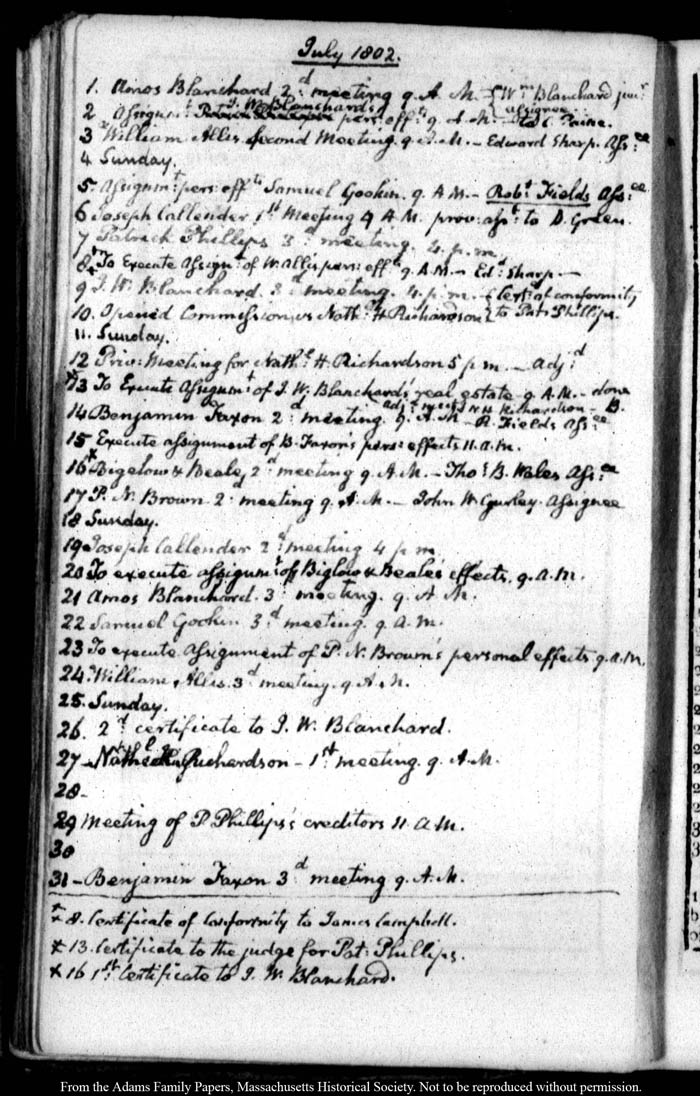 July 1802.
1. Amos Blanchard 2d meeting 9. A. M. { Wm Blanchard junr assignee
2 Assignmt J. W. Blanchard's pers: effts 9. A M — R. C. Paine.
3 William Allis Second Meeting 9 A. M. — Edward Sharp. Assee
4 Sunday.
5. Assignmt pers: effts Samuel Gookin. 9. A M. — Robt Fields Assee
6 Joseph Callender 1st Meeting 9 A M. prov: asst to D. Green.
7 Patrick Phillips 3d meeting. 4. p. m.
8* To Execute Assignt of W. Allis pers: effts 9. A. M. — Edd Sharp. —
9 J. W. Blanchard. 2d meeting. 4. p. m. { Certt of conformity
10. Opened Commission, vs Nathl H Richardson { to Pat: Phillips.
11. Sunday.
12 Priv: Meeting for Nathl H. Richardson 5 p m. — adjd
*13 To Execute Assignmt of J. W. Blanchard's real estate 9. A. M. — done
adjd meetg N H Richardson — B.
14 Benjamin Faxon 2d meeting. 9. A. M — R. Fields Assee
15 Execute assignment of B. Faxon's pers: effects 11. a. m.
16* Bigelow & Beale, 2d meeting 9. A. M. — Thos B. Wales Assee
17 P. N. Brown 2d meeting 9. A. M. — John W. Gurley. Assignee
18 Sunday.
19 Joseph Callender 2d meeting 4 p m
20 To execute assignmt of Biglow & Beale's effects, 9. a. m.
21 Amos Blanchard. 3d meeting. 9. A M.
22 Samuel Gookin 3d meeting. 9 a. m.
23 To execute Assignment of P. N. Brown's personal effects 9. a. m.
24. William Allis. 3d meeting. 9. A. M.
25. Sunday.
26. 2d certificate to J. W. Blanchard.
27 — Richardson — 1st meeting. 9. A. M.
28 -
29 Meeting of P. Phillips's creditors 11. a. m.
30
31 — Benjamin Faxon 3d meeting 9. A. M.
* 8. Certificate of Conformity to James Campbell.
* 13. Certificate to the judge for Pat: Phillips.
* 16 1st Certificate to J. W. Blanchard.
From the Adams Family Papers, Massachusetts Historical Society. Not to be reproduced without permission.